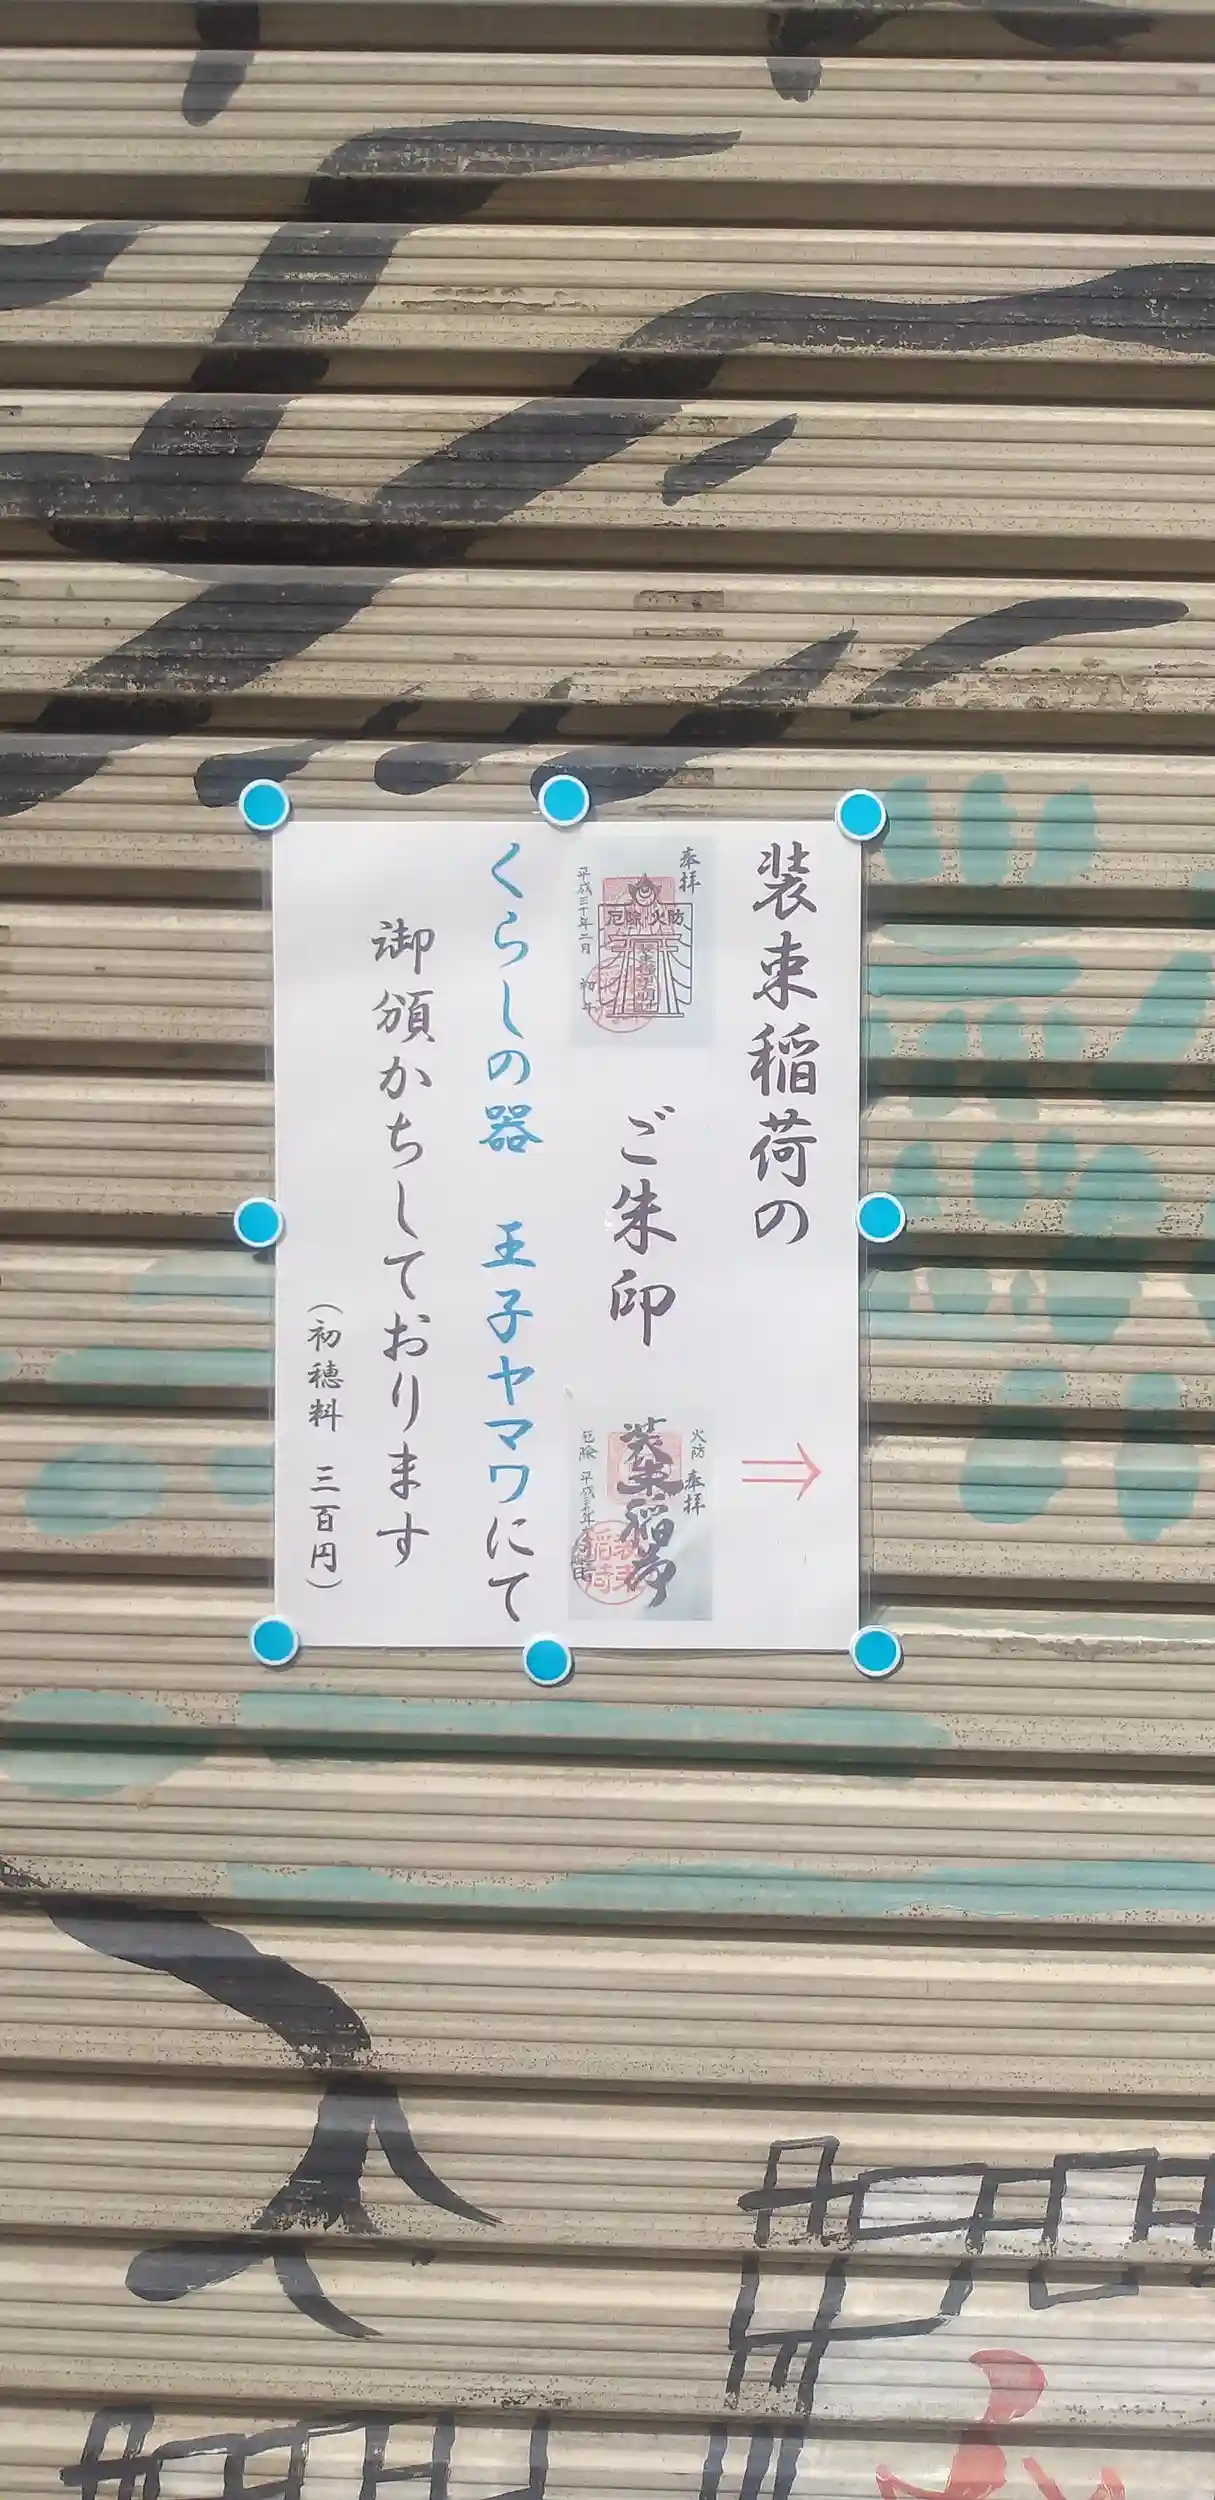 装束稲荷の
ご朱印
奉拝
厄除 火防
平成三十年二月 初午
火防 奉拝
装束稲荷
厄除
くらしの器 王子ヤマワにて
御頒かちしております
(初穂料 三百円)